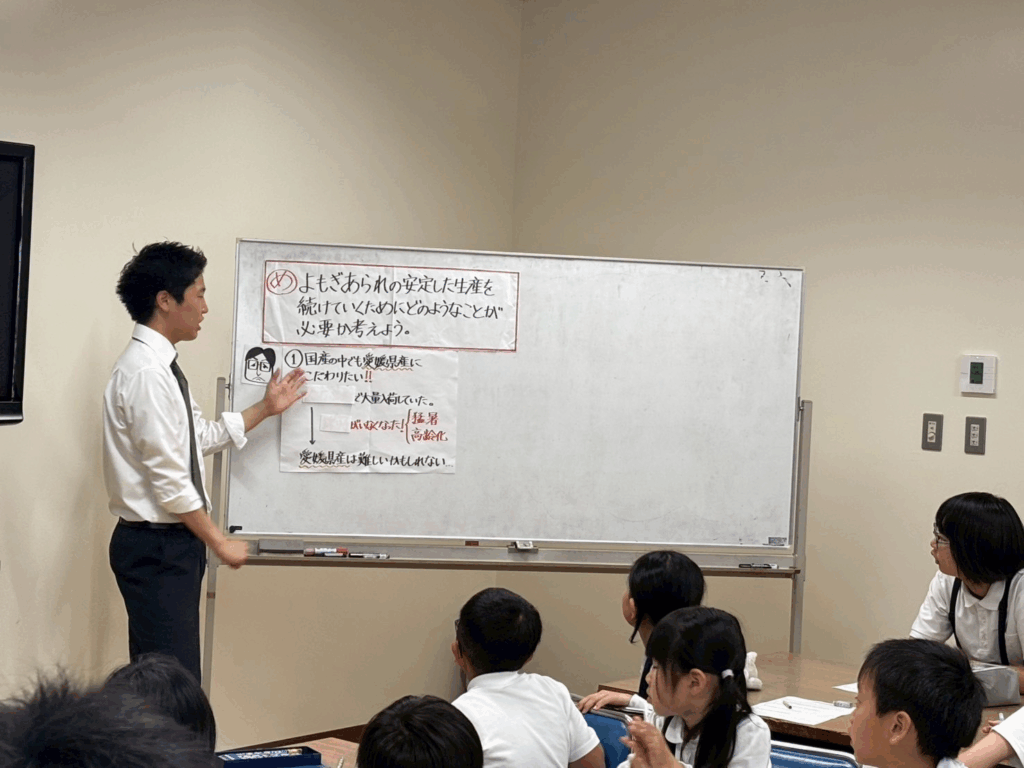 め よもぎあられの安定した生産を
続けていくためにどのようなことが
必要か考えよう。
① 国産の中でも愛媛県産に
こだわりたい!!
で大量入荷していた。
がいなくなった! 猛暑
高齢化
愛媛県産は難しいかもしれない